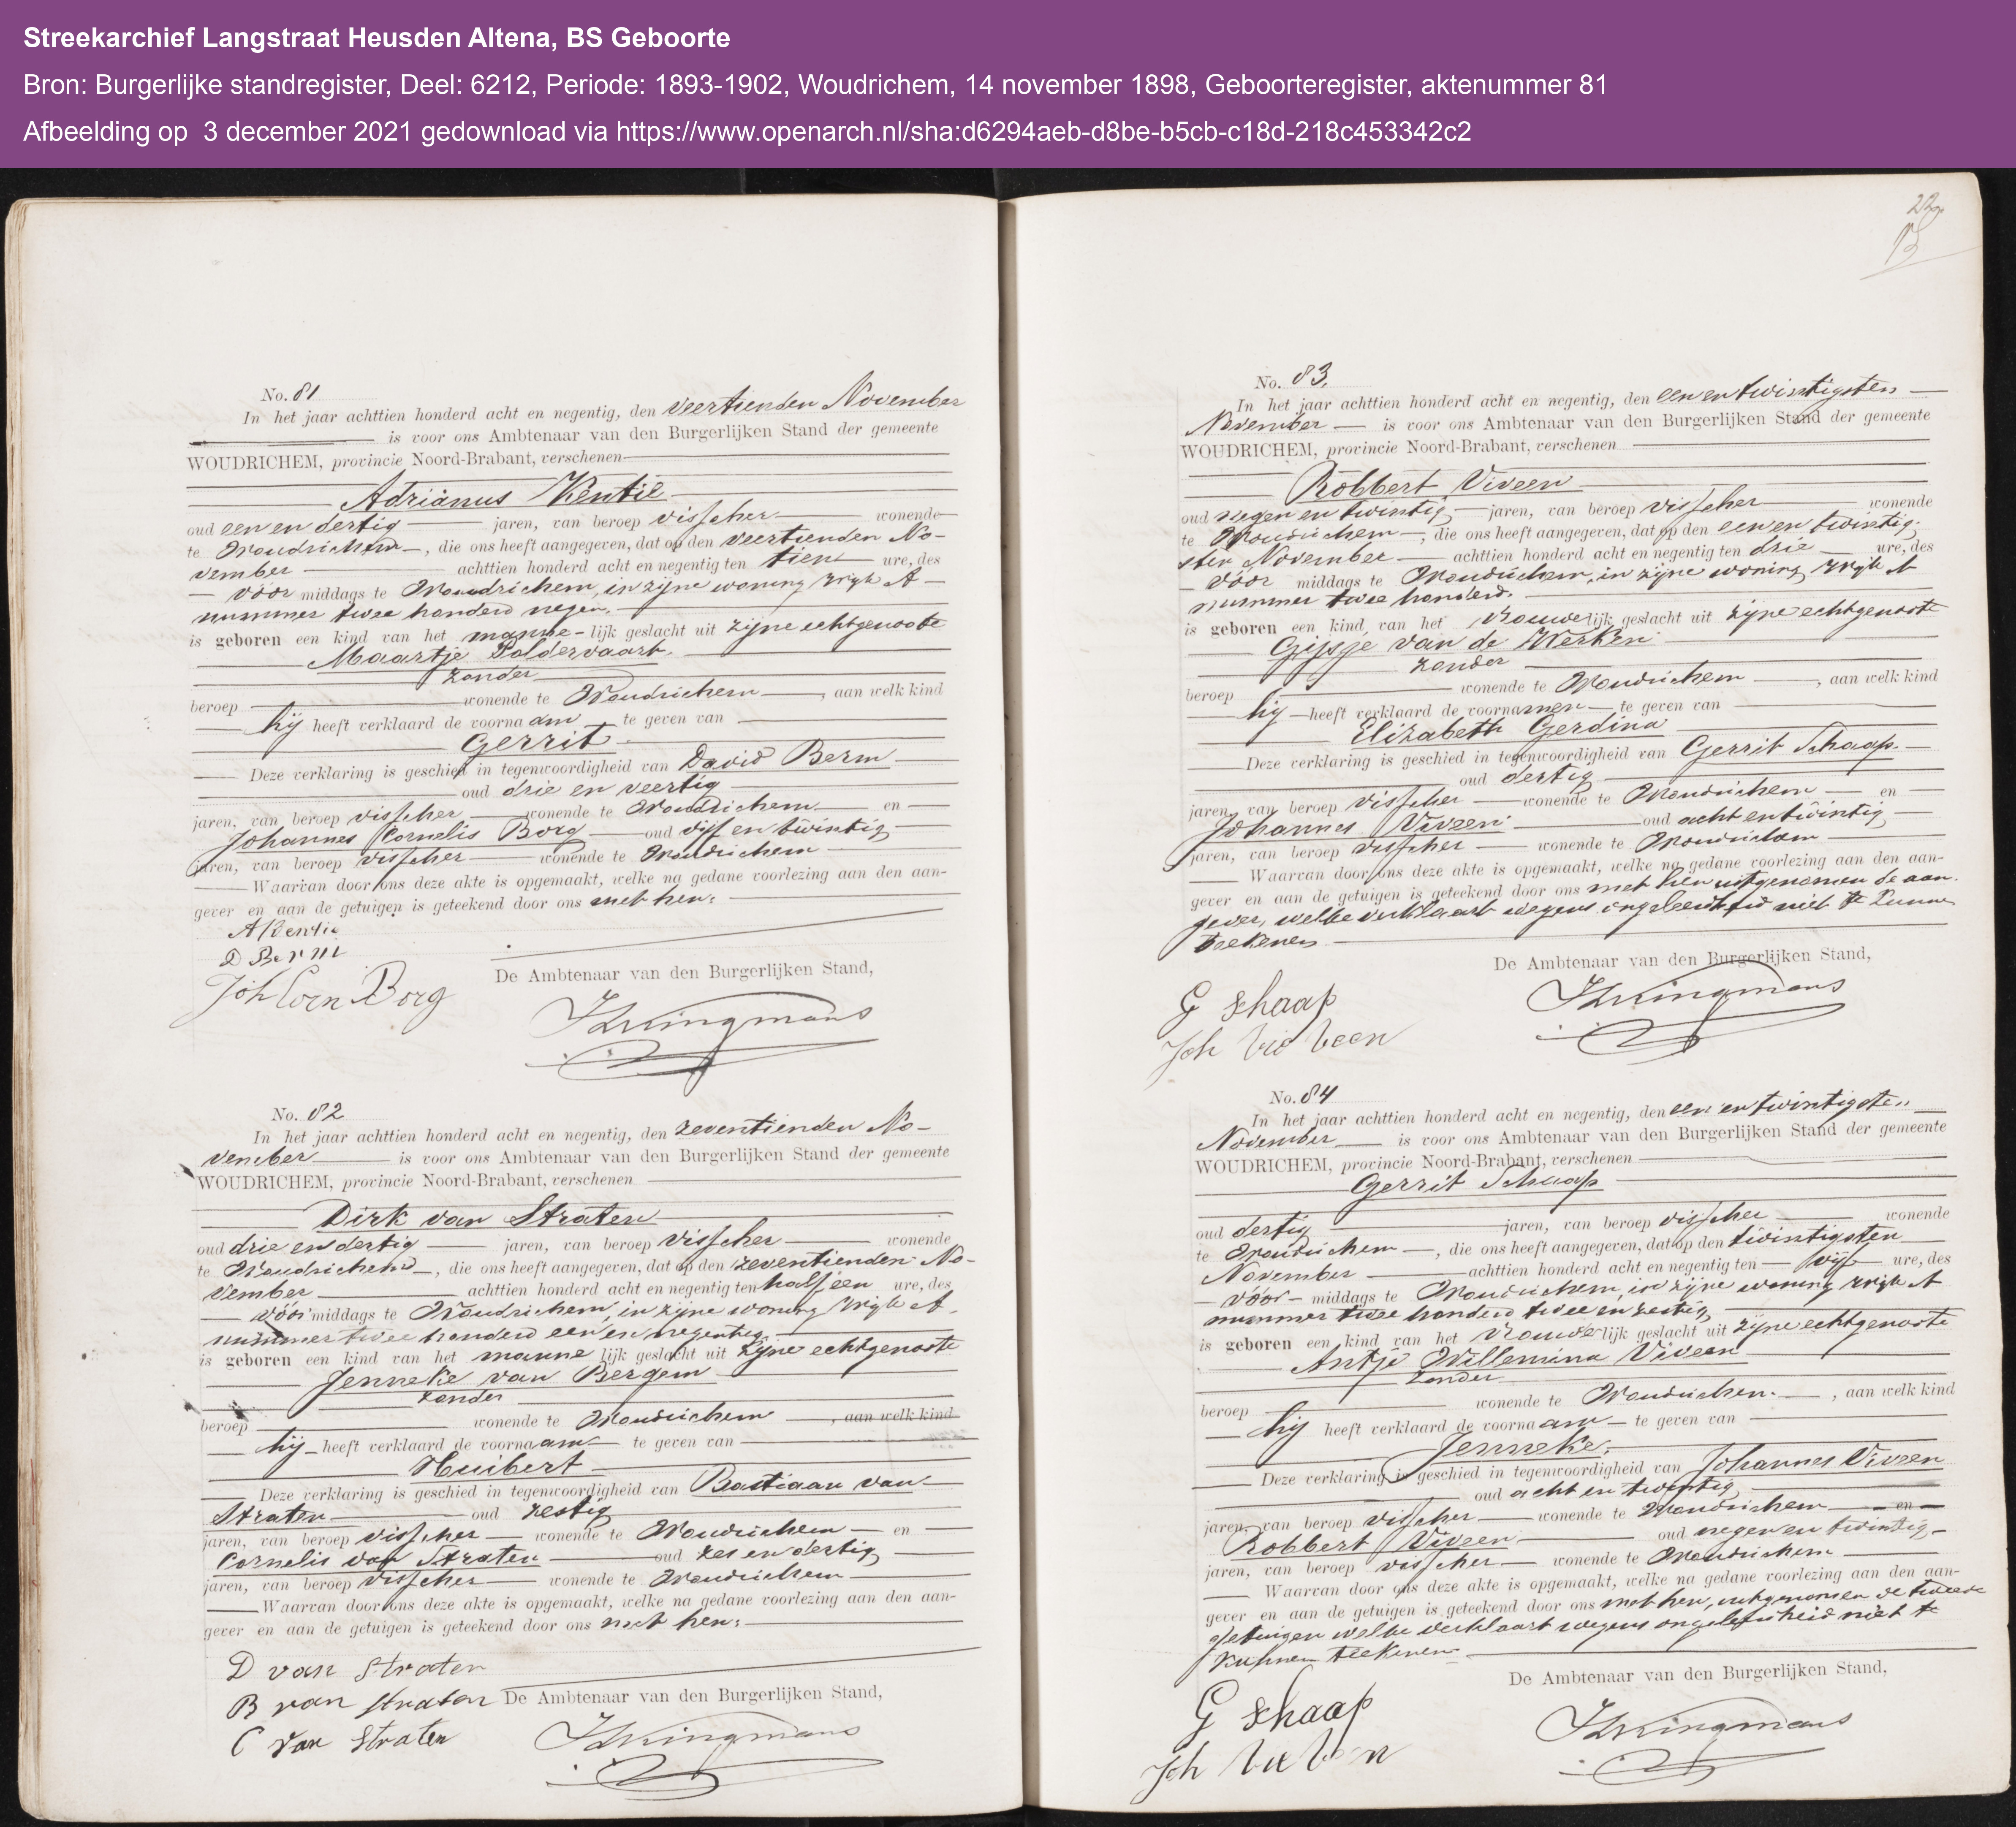 Streekarchief Langstraat Heusden Altena, BS Geboorte
Bron: Burgerlijke standregister, Deel: 6212, Periode: 1893-1902, Woudrichem, 14 november 1898, Geboorteregister, aktenummer 81
Afbeelding op 3 december 2021 gedownload via https://www.openarch.nl/sha:d6294aeb-d8be-b5cb-c18d-218c453342c2
No. 81
In het jaar achttien honderd acht en negentig, den veertienden November
is voor ons Ambtenaar van den Burgerlijken Stand der gemeente
WOUDRICHEM, provincie Noord-Brabant, verschenen
Adrianus Kentie
oud een en dertig jaren, van beroep visscher wonende
te Woudrichem, die ons heeft aangegeven, dat op den veertienden No-
vember achttien honderd acht en negentig ten tien ure, des
vóór middags te Woudrichem, in zijne woning wijk A
nummer twee honderd negen.
is geboren een kind van het manne-lijk geslacht uit zijne echtgenoote
Maartje Poldervaart.
zonder
beroep wonende te Woudrichem, aan welk kind
hij heeft verklaard de voornaam te geven van
Gerrit.
Deze verklaring is geschied in tegenwoordigheid van David Berm
oud drie en veertig
jaren, van beroep visscher wonende te Woudrichem en
Johannes Cornelis Borg oud vijf en twintig
jaren, van beroep visscher wonende te Woudrichem
Waarvan door ons deze akte is opgemaakt, welke na gedane voorlezing aan den aan-
gever en aan de getuigen is geteekend door ons met hen.
A Kentie
D Berm
Joh Corn Borg
De Ambtenaar van den Burgerlijken Stand,
No. 82
In het jaar achttien honderd acht en negentig, den zeventienden No-
vember is voor ons Ambtenaar van den Burgerlijken Stand der gemeente
WOUDRICHEM, provincie Noord-Brabant, verschenen
Dirk van Straten
oud drie en dertig jaren, van beroep visscher wonende
te Woudrichem, die ons heeft aangegeven, dat op den zeventienden No-
vember achttien honderd acht en negentig ten half één ure, des
vóór middags te Woudrichem, in zijne woning wijk A
nummer twee honderd een en negentig
is geboren een kind van het manne lijk geslacht uit zijne echtgenoote
Jenneke van Bergem
zonder
beroep wonende te Woudrichem, aan welk kind
hij heeft verklaard de voornaam te geven van
Huibert
Deze verklaring is geschied in tegenwoordigheid van Bastiaan van
Straten oud zestig
jaren, van beroep visscher wonende te Woudrichem en
Cornelis van Straten oud zes en dertig
jaren, van beroep visscher wonende te Woudrichem
Waarvan door ons deze akte is opgemaakt, welke na gedane voorlezing aan den aan-
gever en aan de getuigen is geteekend door ons met hen.
D van Straten
B van Straten
De Ambtenaar van den Burgerlijken Stand,
C van Straten
No. 83.
In het jaar achttien honderd acht en negentig, den een en twintigsten
November is voor ons Ambtenaar van den Burgerlijken Stand der gemeente
WOUDRICHEM, provincie Noord-Brabant, verschenen
Robbert Viveen
oud negen en twintig jaren, van beroep visscher wonende
te Woudrichem, die ons heeft aangegeven, dat op den een en twintig-
sten November achttien honderd acht en negentig ten drie ure, des
vóór middags te Woudrichem, in zijne woning wijk A
nummer twee honderd.
is geboren een kind van het vrouwelijk geslacht uit zijne echtgenoote
Gijsje van de Werken
zonder
beroep wonende te Woudrichem, aan welk kind
hij heeft verklaard de voornamen te geven van
Elizabeth Gerdina
Deze verklaring is geschied in tegenwoordigheid van Gerrit Schaap.
oud dertig
jaren, van beroep visscher wonende te Woudrichem en
Johannes Viveen oud acht en twintig
jaren, van beroep visscher wonende te Woudrichem
Waarvan door ons deze akte is opgemaakt, welke na gedane voorlezing aan den aan-
gever en aan de getuigen is geteekend door ons met hen uitgenomen de aan-
gever, welke verklaart wegens ongeleerdheid niet te kunnen
teekenen
De Ambtenaar van den Burgerlijken Stand,
G Schaap
Joh
No. 84
In het jaar achttien honderd acht en negentig, den een en twintigsten
November is voor ons Ambtenaar van den Burgerlijken Stand der gemeente
WOUDRICHEM, provincie Noord-Brabant, verschenen
Gerrit Schaap
oud dertig jaren, van beroep visscher wonende
te Woudrichem, die ons heeft aangegeven, dat op den twintigsten
November achttien honderd acht en negentig ten vijf ure, des
vóór middags te Woudrichem, in zijne woning wijk A
nummer twee honderd twee en zestig
is geboren een kind van het vrouwelijk geslacht uit zijne echtgenoote
Antje Willemina Viveen
zonder
beroep wonende te Woudrichem, aan welk kind
hij heeft verklaard de voornaam te geven van
Jenneke.
Deze verklaring is geschied in tegenwoordigheid van Johannes Viveen
oud acht en twintig
jaren, van beroep visscher wonende te Woudrichem en
Robbert Viveen oud negen en twintig
jaren, van beroep visscher wonende te Woudrichem
Waarvan door ons deze akte is opgemaakt, welke na gedane voorlezing aan den aan-
gever en aan de getuigen is geteekend door ons met hen, uitgenomen de tweede
getuigen welke verklaart wegens ongeleerdheid niet te
kunnen teekenen
De Ambtenaar van den Burgerlijken Stand,
G Schaap
Joh